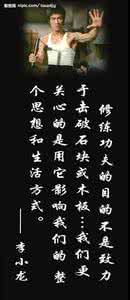 昵图网
nipic.com/tuanjy
修练功夫的目的不是致力
于击破石块或木板…我们更
关心的是用它影响我们的整
个思想和生活方式。
——李小龙